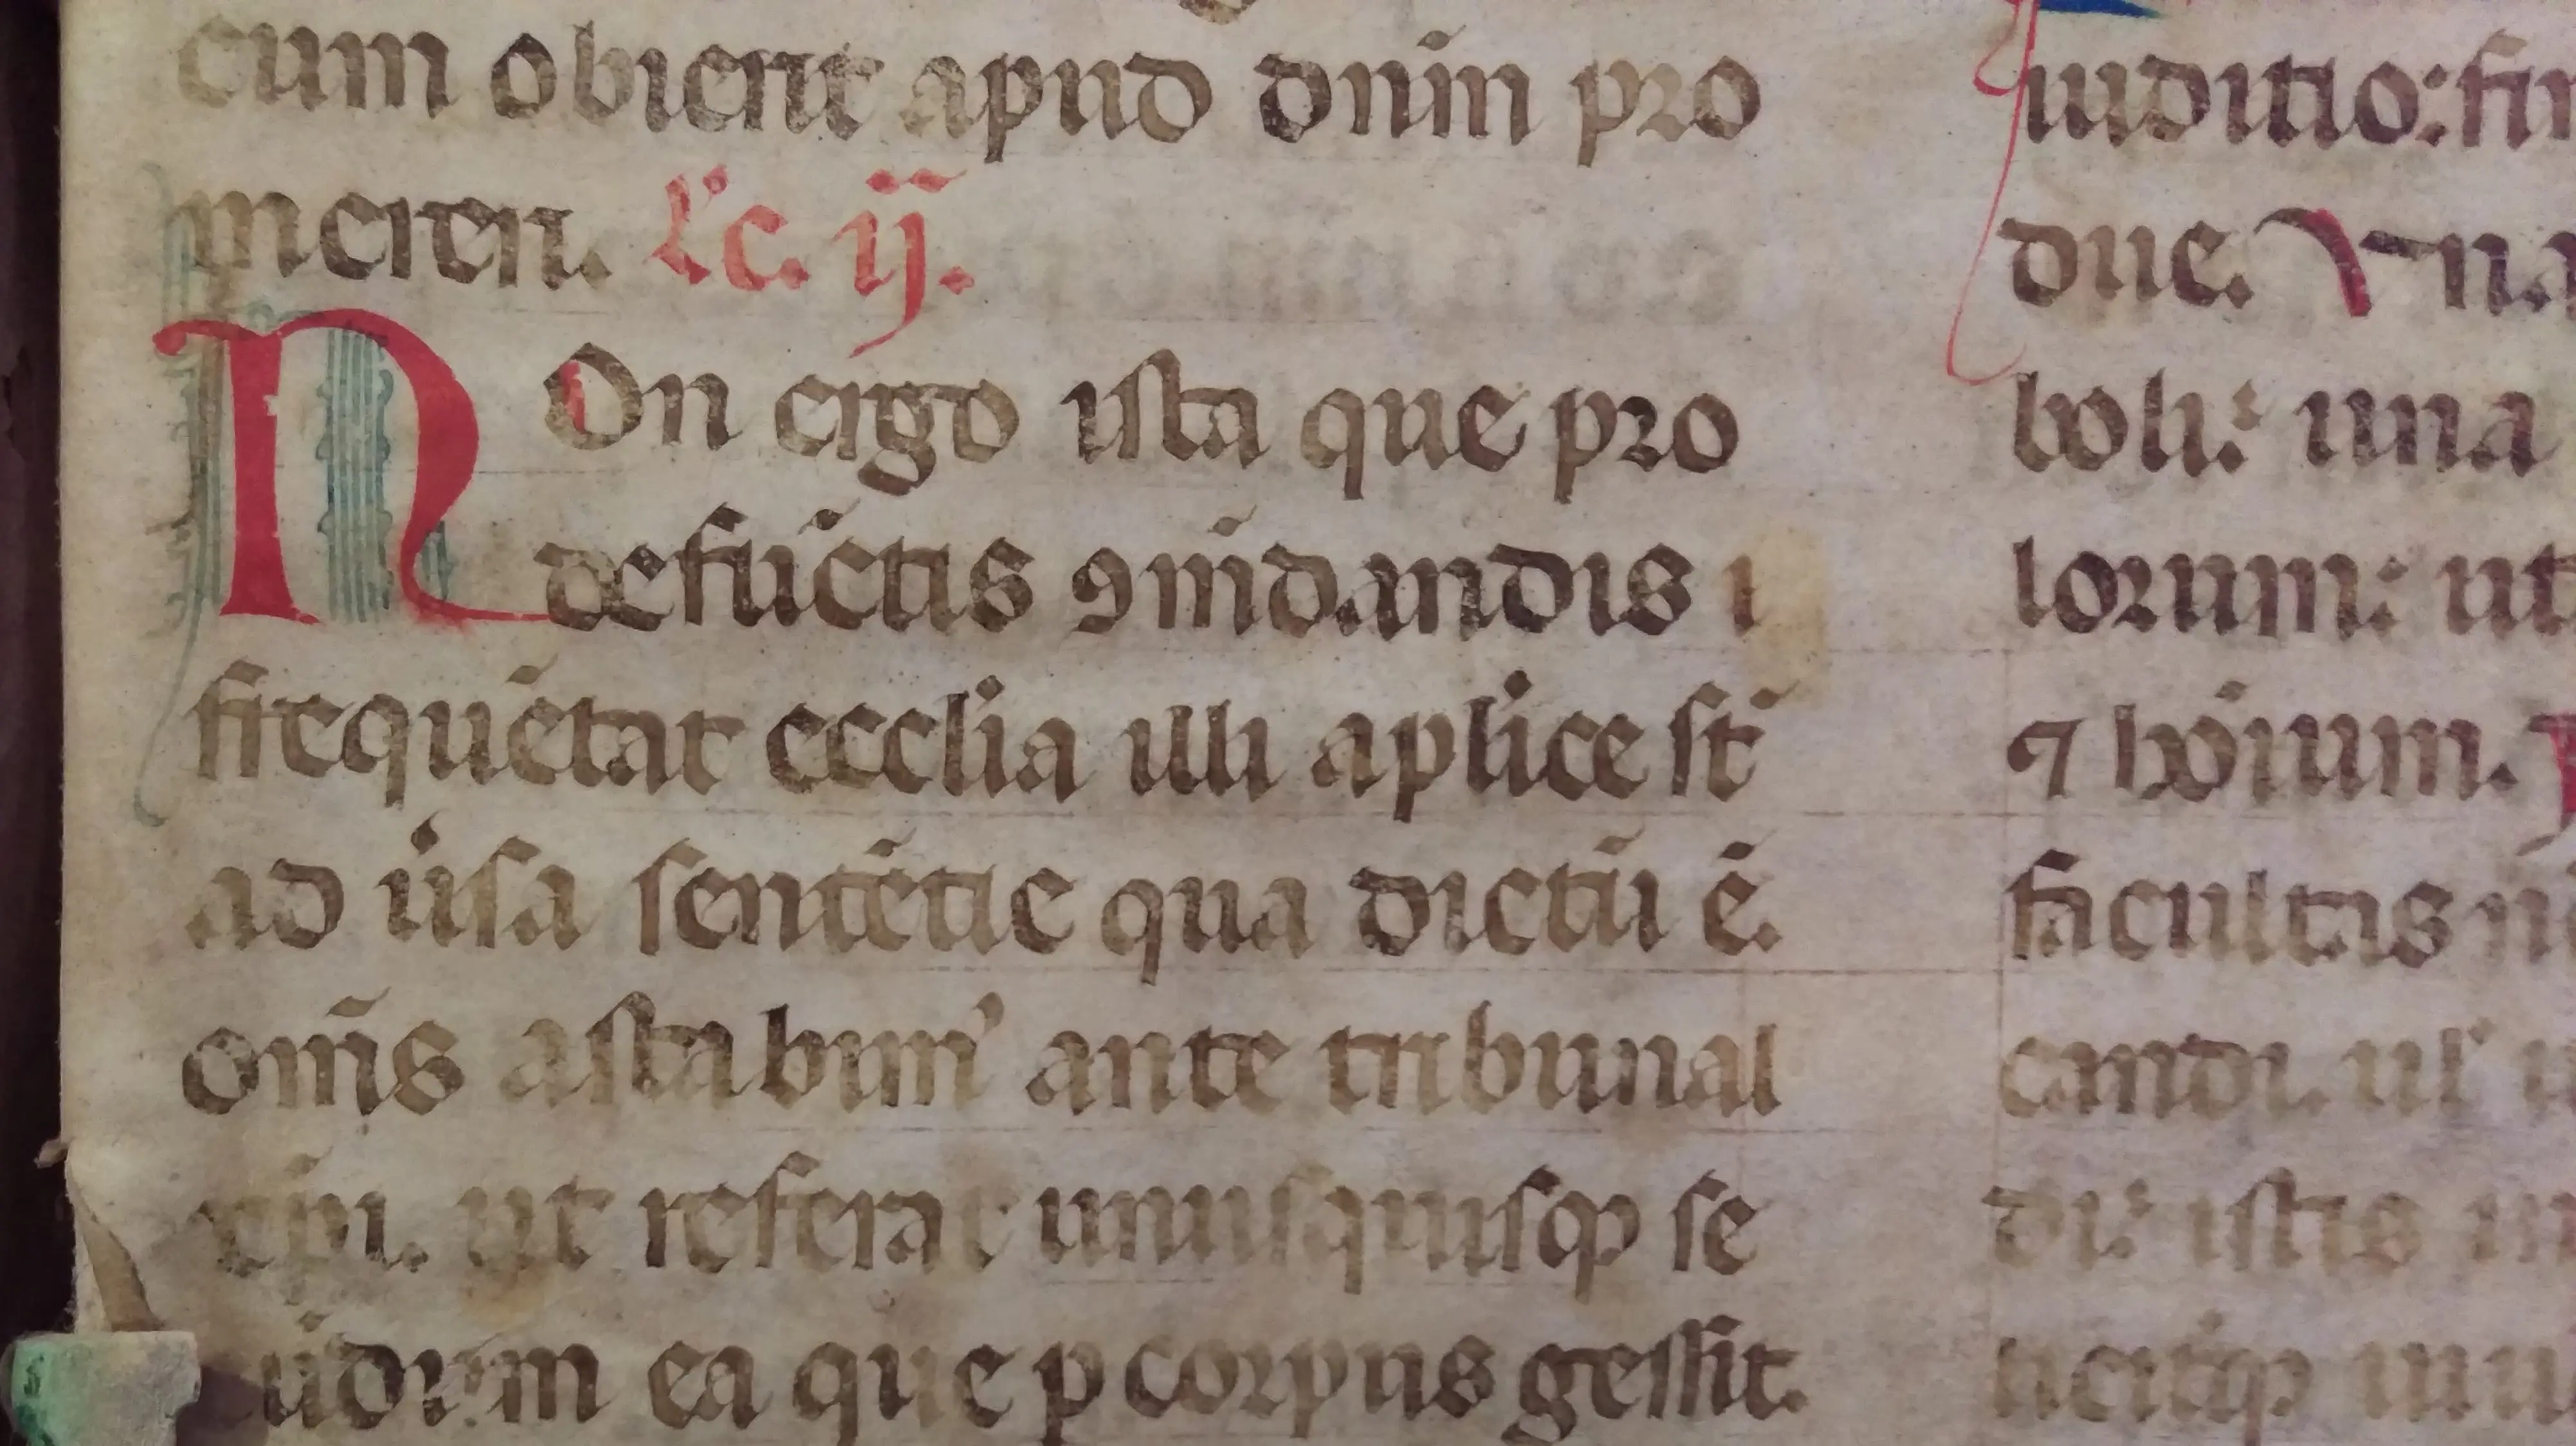 cum obierit apud dn̄m pro
mereri. l̓c. ij.
NOn ergo ista que pro
defūctis ꝯmēdandis
frequētat ecclia illi aplice st̄
ad ũsa sentētie qua dictū ē.
om̄s astabim᾽ ante tribunal
xp̄i. ut referat unusquisqꝫ se
cūdum ea que ꝑ corpus gessit.
iuditio:
due. Una
boli: una
lorum: ut
⁊ hōium.
facultis
candi. ul᾽
di: istis